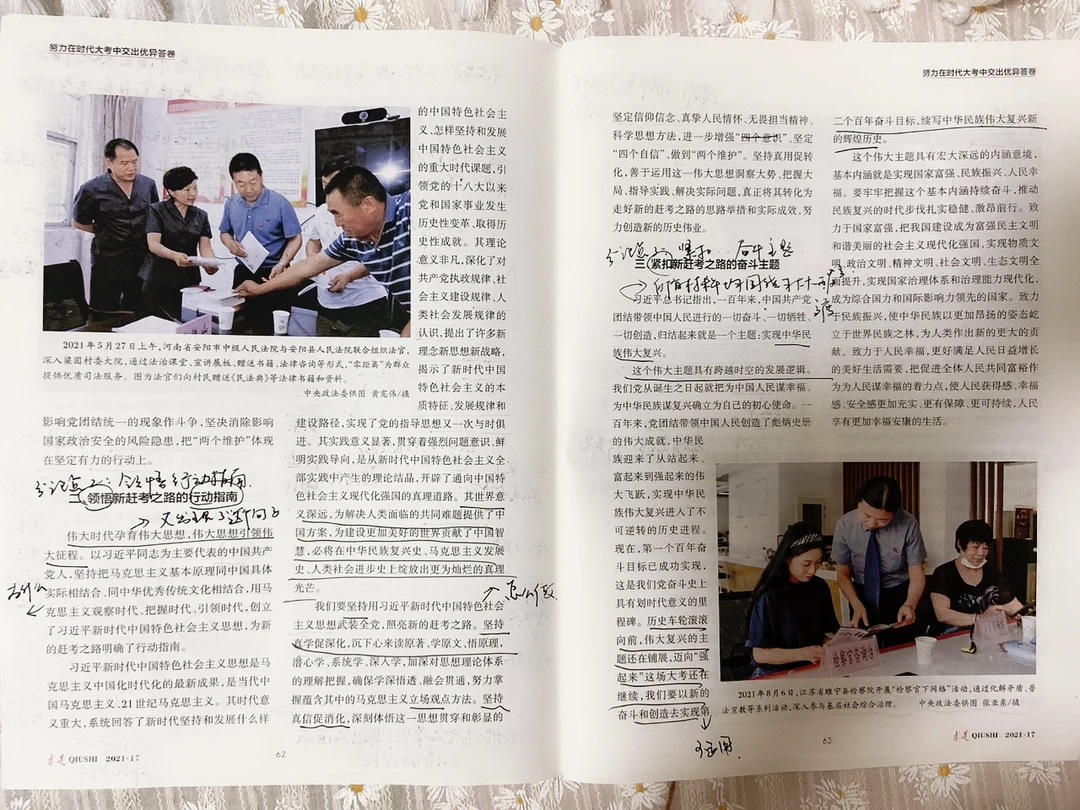 努力在时代大考中交出优异答卷
2021年5月27日上午,河南省安阳市中级人民法院与安阳县人民法院联合组织法官,
深入梁园村委大院,通过法治课堂、宣讲展板、赠送书籍、法律咨询等形式,“零距离”为群众
提供优质司法服务。图为法官们向村民赠送《民法典》等法律书籍和资料。
中央政法委供图 黄宪伟/摄
影响党团结统一的现象作斗争,坚决消除影响
国家政治安全的风险隐患,把“两个维护”体现
在坚定有力的行动上。
分论点二:领悟行动指南
二、领悟新赶考之路的行动指南
伟大时代孕育伟大思想,伟大思想引领伟
大征程。以习近平同志为主要代表的中国共产
党人,坚持把马克思主义基本原理同中国具体
实际相结合、同中华优秀传统文化相结合,用马
克思主义观察时代、把握时代、引领时代,创立
了习近平新时代中国特色社会主义思想,为新
的赶考之路明确了行动指南。
习近平新时代中国特色社会主义思想是马
克思主义中国化时代化的最新成果,是当代中
国马克思主义、21世纪马克思主义。其时代意
义重大,系统回答了新时代坚持和发展什么样
的中国特色社会主
义、怎样坚持和发展
中国特色社会主义
的重大时代课题,引
领党的十八大以来
党和国家事业发生
历史性变革、取得历
史性成就。其理论
意义非凡,深化了对
共产党执政规律、社
会主义建设规律、人
类社会发展规律的
认识,提出了许多新
理念新思想新战略,
揭示了新时代中国
特色社会主义的本
质特征、发展规律和
建设路径,实现了党的指导思想又一次与时俱
进。其实践意义显著,贯穿着强烈问题意识、鲜
明实践导向,是从新时代中国特色社会主义全
部实践中产生的理论结晶,开辟了通向中国特
色社会主义现代化强国的真理道路。其世界意
义深远,为解决人类面临的共同难题提供了中
国方案,为建设更加美好的世界贡献了中国智
慧,必将在中华民族复兴史、马克思主义发展
史、人类社会进步史上绽放出更为灿烂的真理
光芒。
怎么做
我们要坚持用习近平新时代中国特色社会
主义思想武装全党,照亮新的赶考之路。坚持
真学促深化,沉下心来读原著、学原文、悟原理,
潜心学、系统学、深入学,加深对思想理论体系
的理解把握,确保学深悟透、融会贯通,努力掌
握蕴含其中的马克思主义立场观点方法。坚持
真信促消化,深刻体悟这一思想贯穿和彰显的
求是 QIUSHI 2021·17
62
努力在时代大考中交出优异答卷
坚定信仰信念、真挚人民情怀、无畏担当精神、
科学思想方法,进一步增强“四个意识”、坚定
“四个自信”、做到“两个维护”。坚持真用促转
化,善于运用这一伟大思想洞察大势、把握大
局、指导实践、解决实际问题,真正将其转化为
走好新的赶考之路的思路举措和实际成效,努
力创造新的历史伟业。
分论点三:紧扣 奋斗主题
三、紧扣新赶考之路的奋斗主题
习近平总书记指出,一百年来,中国共产党
团结带领中国人民进行的一切奋斗、一切牺牲、
一切创造,归结起来就是一个主题:实现中华民
族伟大复兴。
这个伟大主题具有跨越时空的发展逻辑。
我们党从诞生之日起就把为中国人民谋幸福、
为中华民族谋复兴确立为自己的初心使命。一
百年来,党团结带领中国人民创造了彪炳史册
的伟大成就,中华民
族迎来了从站起来、
富起来到强起来的伟
大飞跃,实现中华民
族伟大复兴进入了不
可逆转的历史进程。
现在,第一个百年奋
斗目标已成功实现,
这是我们党奋斗史上
具有划时代意义的里
程碑。历史车轮滚滚
向前,伟大复兴的主
题还在铺展,迈向“强
起来”这场大考还在
继续,我们要以新的
奋斗和创造去实现第
可运用
二个百年奋斗目标,续写中华民族伟大复兴新
的辉煌历史。
这个伟大主题具有宏大深远的内涵意境,
基本内涵就是实现国家富强、民族振兴、人民幸
福。要牢牢把握这个基本内涵持续奋斗,推动
民族复兴的时代步伐扎实稳健、激昂前行。致
力于国家富强,把我国建设成为富强民主文明
和谐美丽的社会主义现代化强国,实现物质文
明、政治文明、精神文明、社会文明、生态文明全
面提升,实现国家治理体系和治理能力现代化,
成为综合国力和国际影响力领先的国家。致力
于民族振兴,使中华民族以更加昂扬的姿态屹
立于世界民族之林,为人类作出新的更大的贡
献。致力于人民幸福,更好满足人民日益增长
的美好生活需要,把促进全体人民共同富裕作
为为人民谋幸福的着力点,使人民获得感、幸福
感、安全感更加充实、更有保障、更可持续,人民
享有更加幸福安康的生活。
检察官咨询台
2021年8月6日,江苏省睢宁县检察院开展“检察官下网格”活动,通过化解矛盾、普
法宣教等系列活动,深入参与基层社会综合治理。 中央政法委供图 张亚东/摄
63
求是 QIUSHI 2021·17